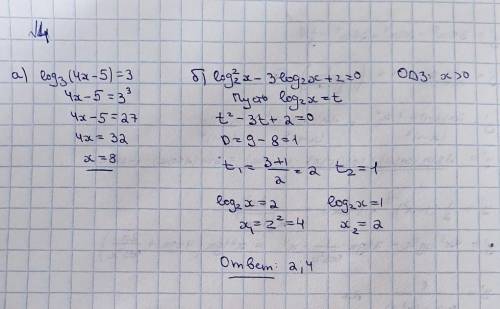 №4
а) log₃(4x-5)=3
4x-5=3³
4x-5=27
4x=32
x=8
б) log₂²x-3·log₂x+2=0 ОДЗ: x>0
Пусть log₂x=t
t²-3t+2=0
D=9-8=1
t₁=(3+1)/2=2 t₂=1
log₂x=2 log₂x=1
x₁=2²=4 x₂=2
Ответ: 2,4